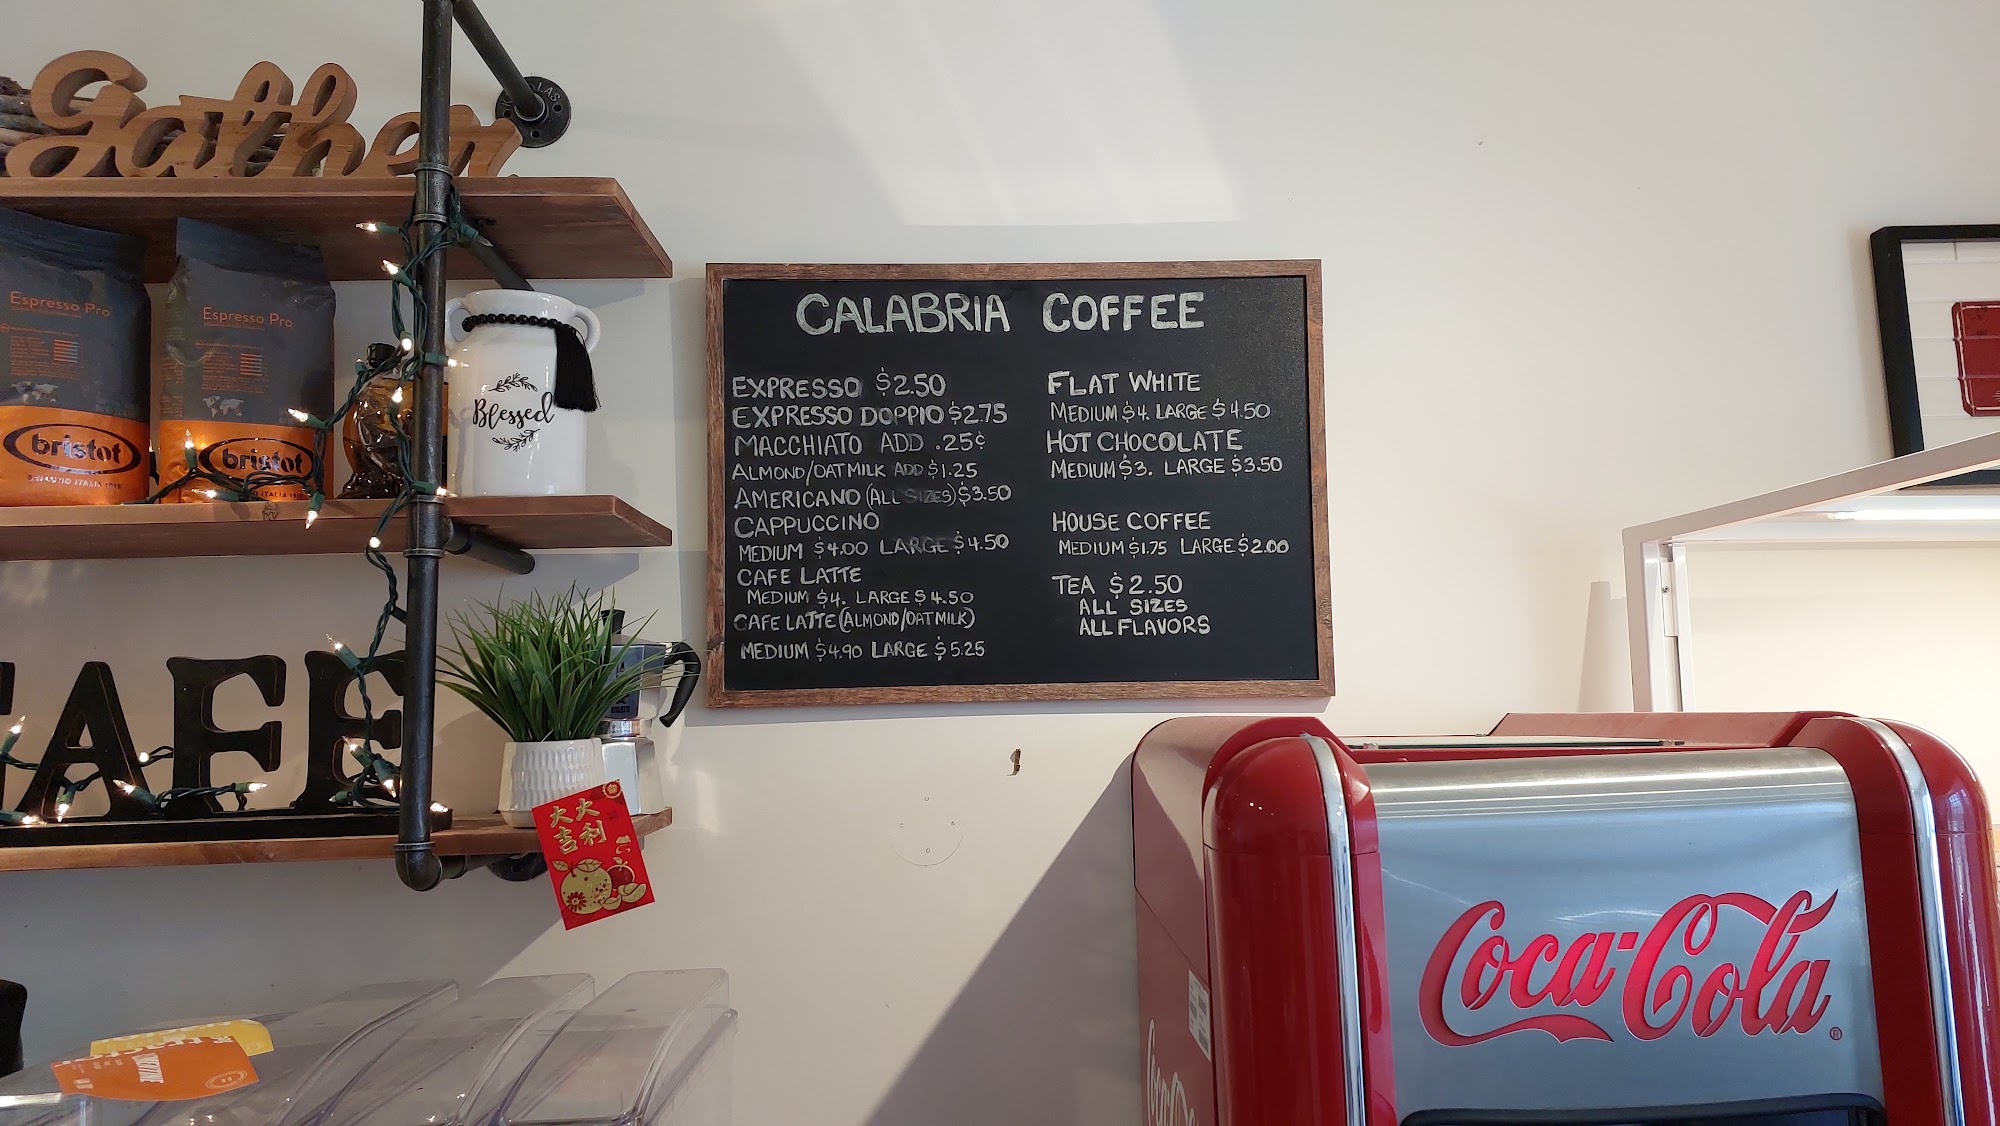 gather
Espresso Pro
bristot
Espresso Pro
bristot
Blessed
CAFE
大大
吉利
CALABRIA COFFEE
EXPRESSO $2.50
EXPRESSO DOPPIO $2.75
MACCHIATO ADD .25¢
ALMOND/OATMILK ADD $1.25
AMERICANO (ALL SIZES) $3.50
CAPPUCCINO
MEDIUM $4.00 LARGE $4.50
CAFE LATTE
MEDIUM $4. LARGE $4.50
CAFE LATTE (ALMOND/OATMILK)
MEDIUM $4.90 LARGE $5.25
FLAT WHITE
MEDIUM $4. LARGE $4.50
HOT CHOCOLATE
MEDIUM $3. LARGE $3.50
HOUSE COFFEE
MEDIUM $1.75 LARGE $2.00
TEA $2.50
ALL SIZES
ALL FLAVORS
Coca-Cola®